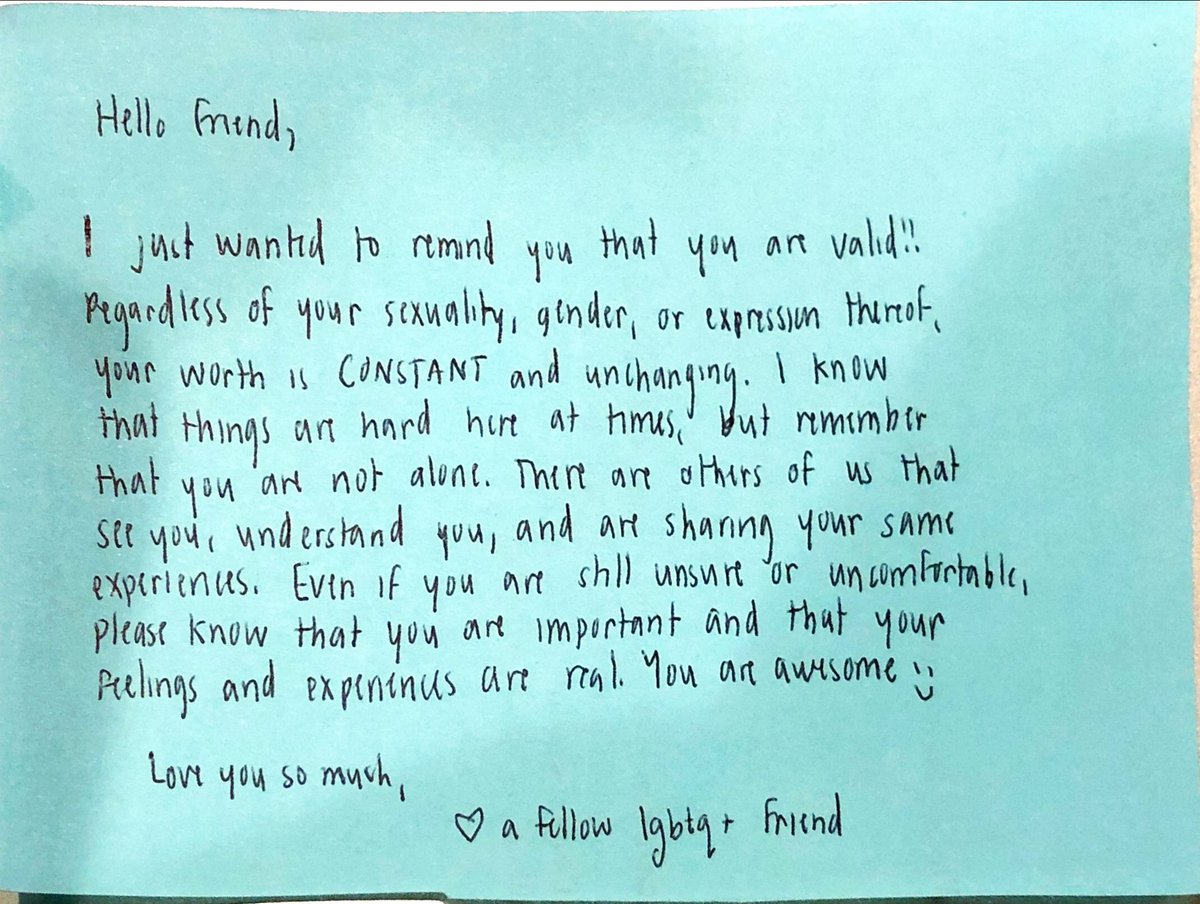 Hello friend,
I just wanted to remind you that you are valid!!
Regardless of your sexuality, gender, or expression thereof,
your worth is CONSTANT and unchanging. I know
that things are hard here at times, but remember
that you are not alone. There are others of us that
see you, understand you, and are sharing your same
experiences. Even if you are still unsure or uncomfortable,
please know that you are important and that your
feelings and experiences are real. You are awesome :)
Love you so much,
♡ a fellow lgbtq+ friend